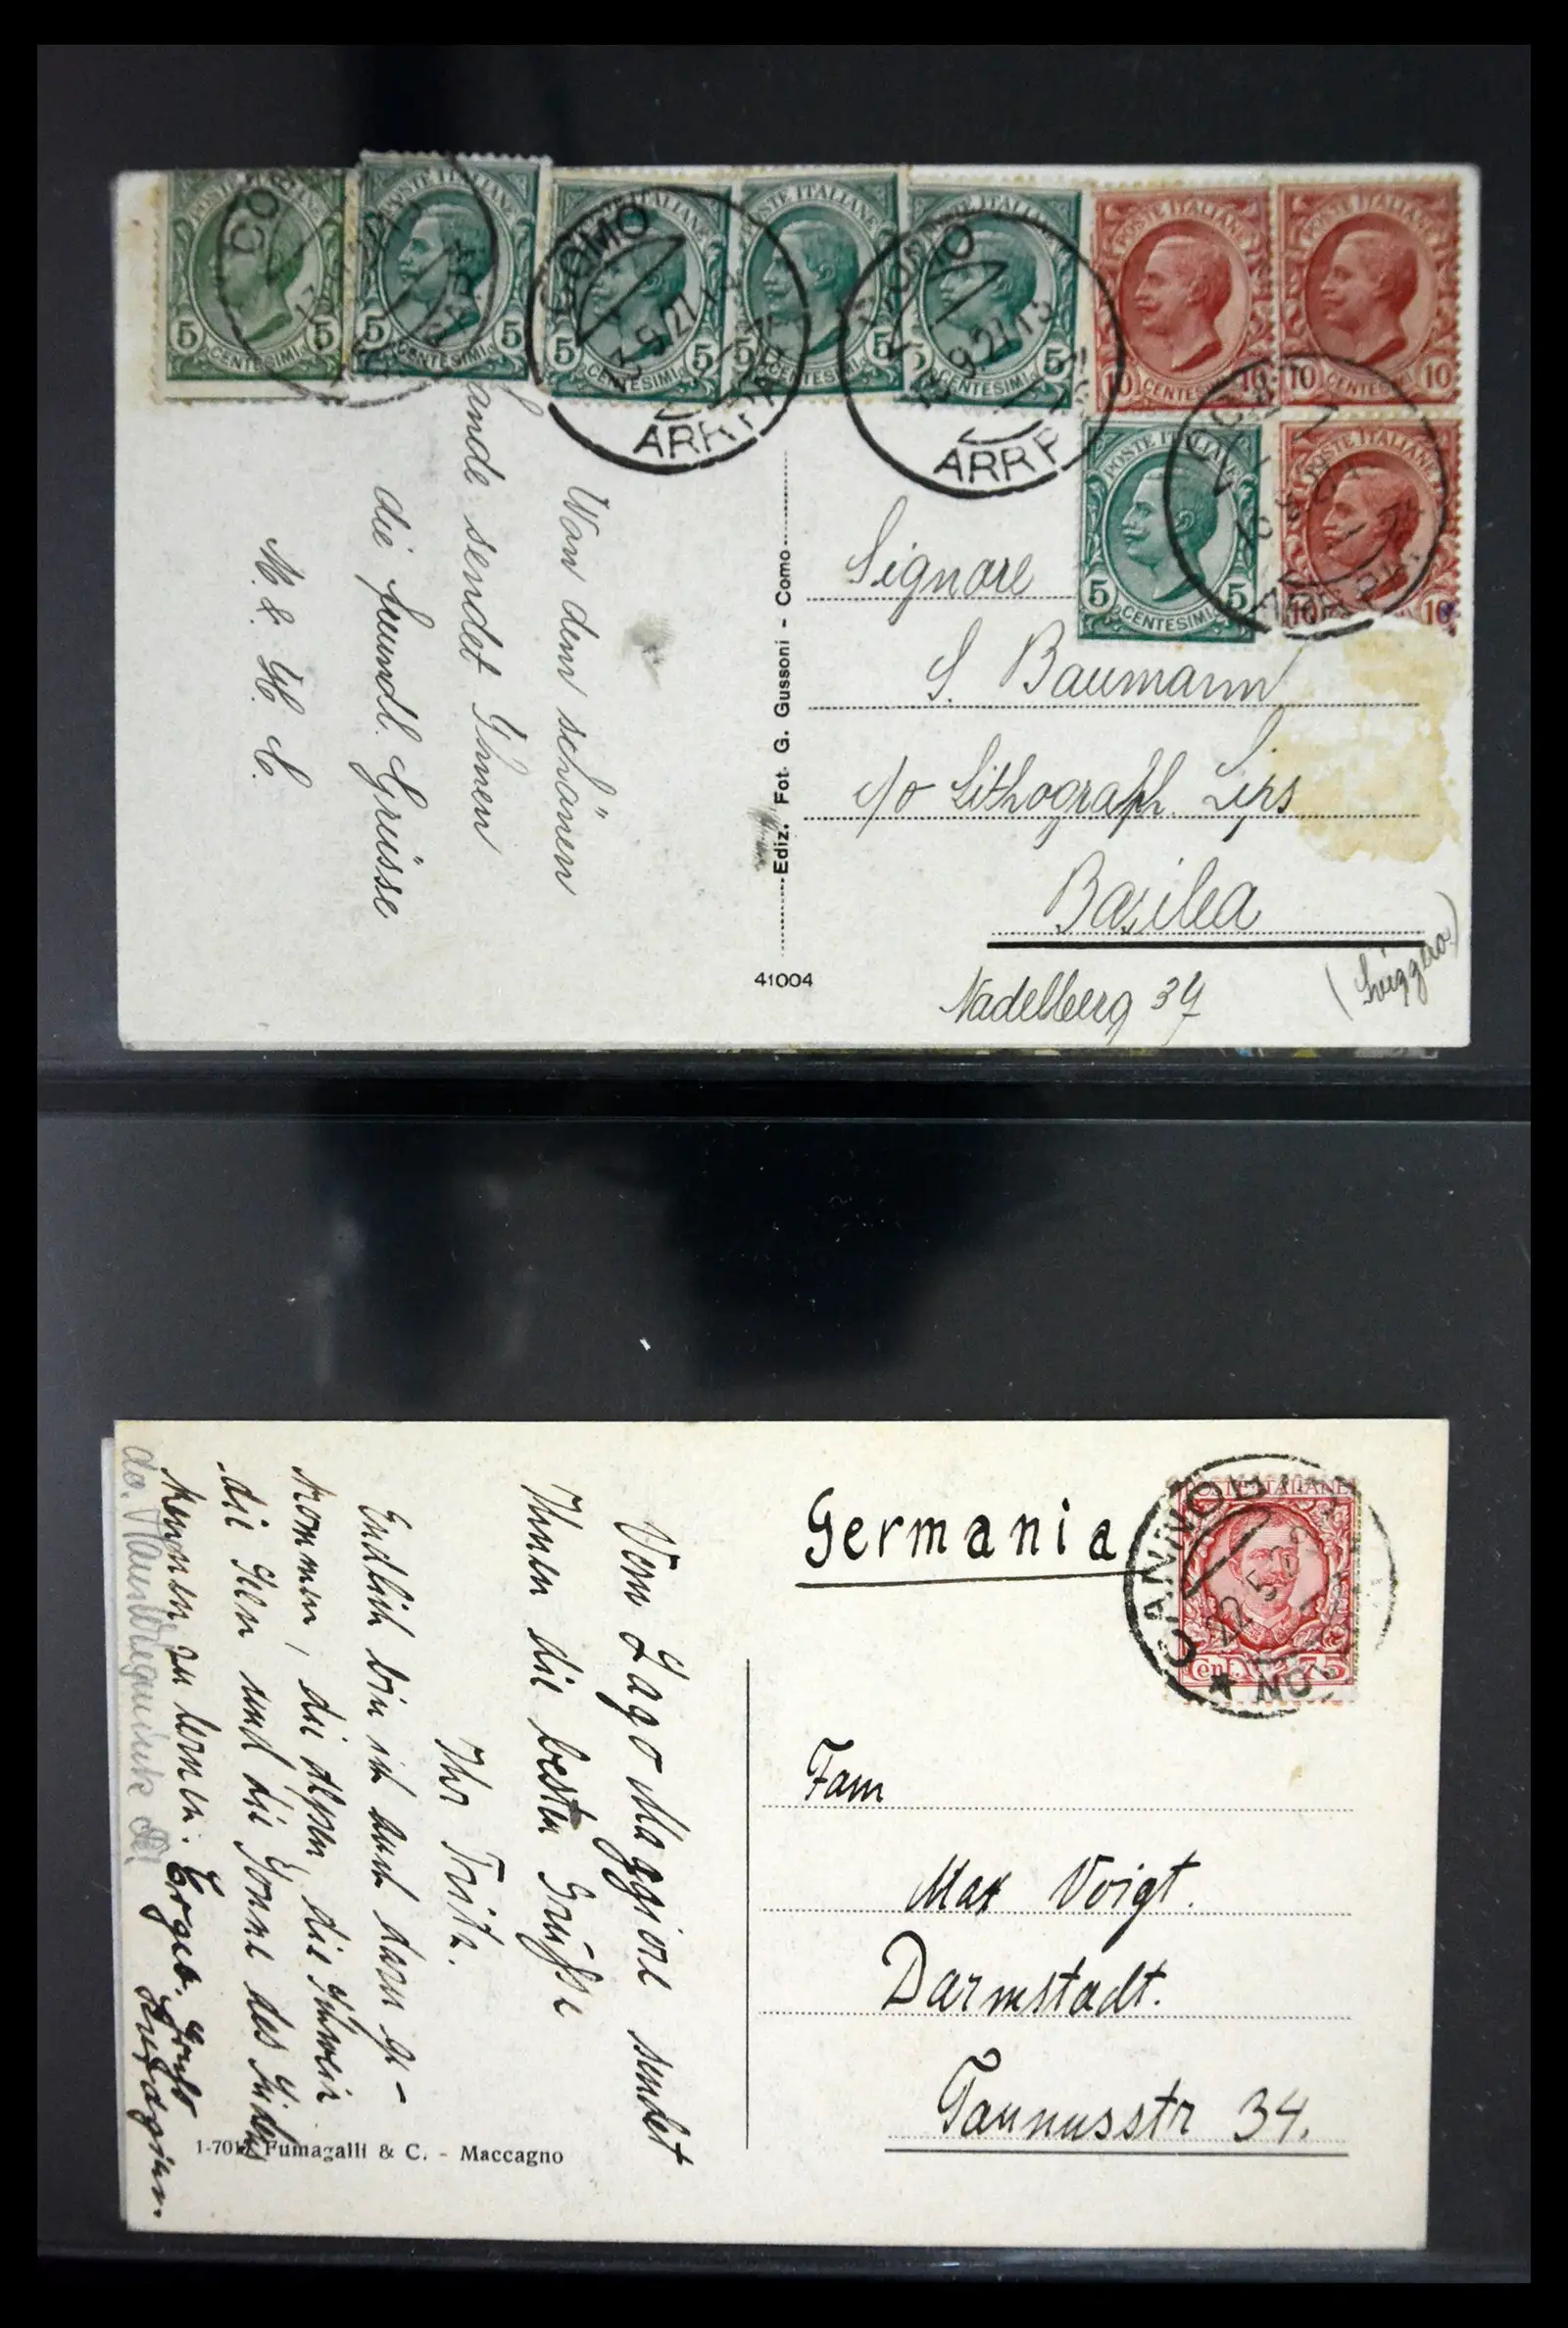 POSTE ITALIANE
5 CENTESIMI 5
POSTE ITALIANE
5 CENTESIMI 5
POSTE ITALIANE
5 CENTESIMI 5
POSTE ITALIANE
5 CENTESIMI 5
POSTE ITALIANE
5 CENTESIMI 5
POSTE ITALIANE
10 CENTESIMI 10
POSTE ITALIANE
10 CENTESIMI 10
POSTE ITALIANE
5 CENTESIMI 5
POSTE ITALIANE
10 10
COMO
ARR
COMO
ARR
Von dem schönen
ande sendet Ihnen
die freundl. Grüsse
M. & H. C.
Ediz. Fot. G. Gussoni - Como
41004
Signore
S. Baumann
c/o Lithograph. Lips
Basilea
Nadelberg 37
Germania
POSTE ITALIANE
Cent. 75
CANNOB
22.5
NO
Vom Lago Maggiore sendet
Ihnen die besten Grüße
Ihr Fritz.
Endlich bin ich auch dazu ge-
kommen, die Alpen, die Schweiz
die Seen und die Sonne des Südens
kennen zu lernen. Ergeb. Gruß
1-701 Fumagalli & C. - Maccagno
Fam
Max Voigt.
Darmstadt.
Taunusstr 34.